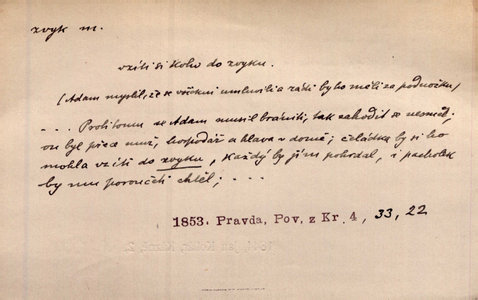 zvyk m.
vzíti si koho do zvyku.
(Adam myslil, že se všichni umluvili a rádi by ho měli za podnožku)
.... Proti tomu se Adam musil brániti, tak zahodit se nesměl
on byl přece muž, hospodář a hlava v domě; čeládka by si ho
mohla vzíti do zvyku, každý by jím pohrdal, i pacholek
by mu poroučeti chtěl; ....
1853. Pravda, Pov. z Kr. 4, 33, 22